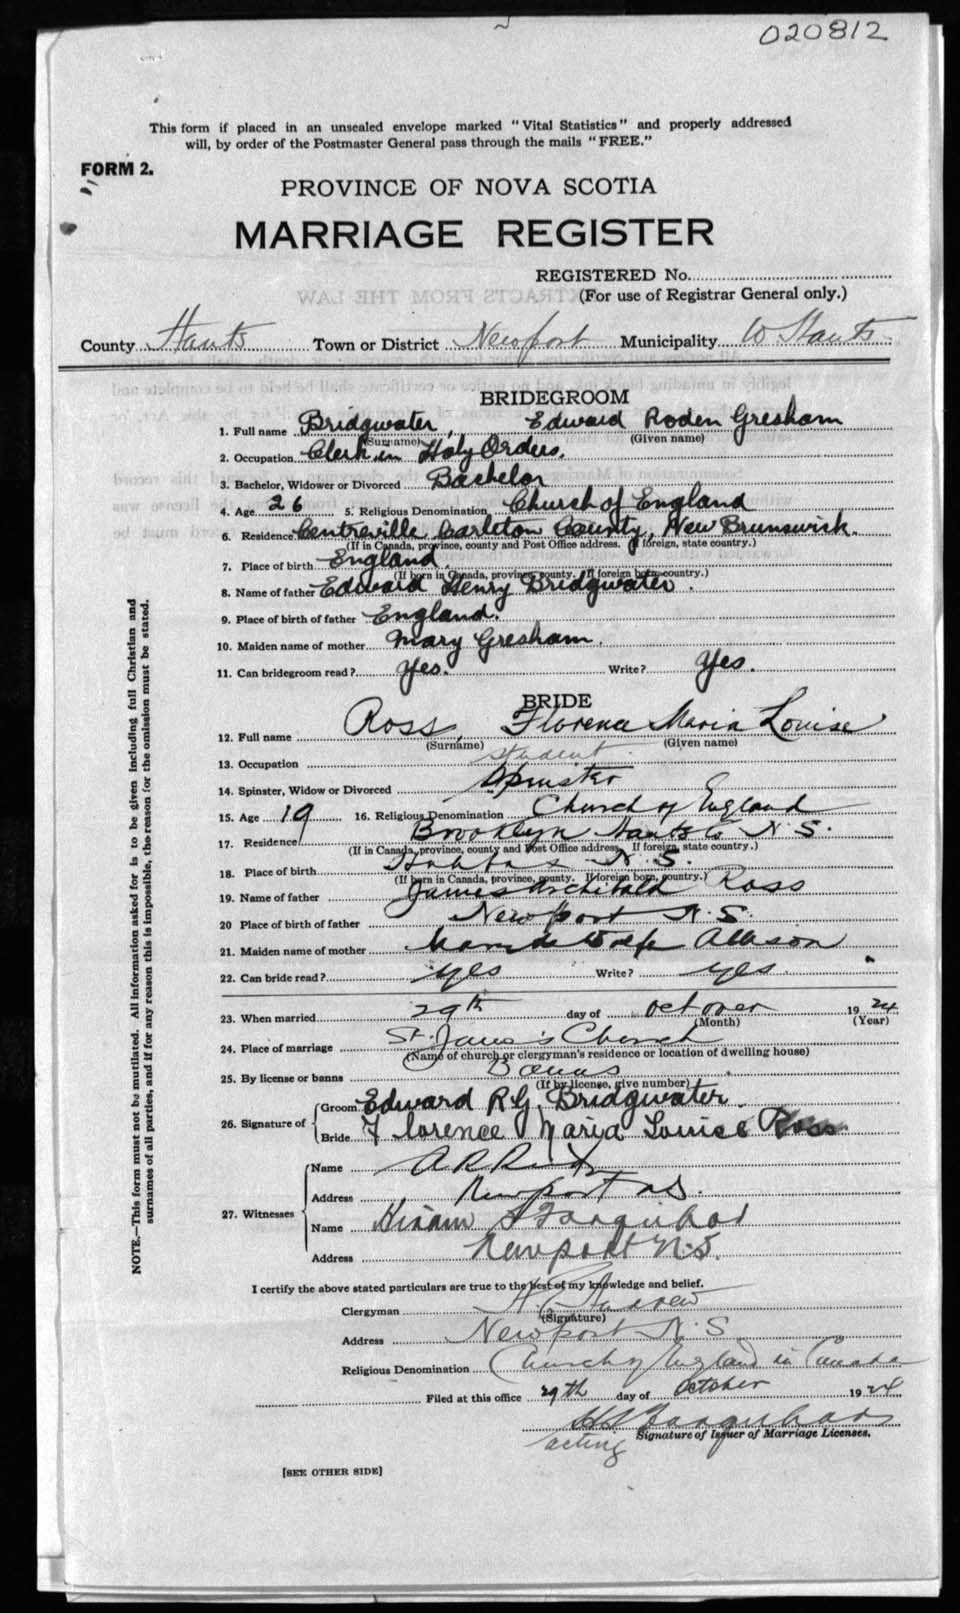 020812
This form if placed in an unsealed envelope marked "Vital Statistics" and properly addressed
will, by order of the Postmaster General pass through the mails "FREE."
FORM 2.
PROVINCE OF NOVA SCOTIA
MARRIAGE REGISTER
REGISTERED No.
(For use of Registrar General only.)
County Hants Town or District Newport Municipality W Hants
BRIDEGROOM
1. Full name Bridgwater, Edward Roden Gresham
(Surname) (Given name)
2. Occupation Clerk in Holy Orders.
3. Bachelor, Widower or Divorced Bachelor
4. Age 26 5. Religious Denomination Church of England
6. Residence Centreville, Carleton County, New Brunswick.
(If in Canada, province, county and Post Office address. If foreign, state country.)
7. Place of birth England.
(If born in Canada, province, county. If foreign born, country.)
8. Name of father Edward Henry Bridgwater.
9. Place of birth of father England.
10. Maiden name of mother Mary Gresham.
11. Can bridegroom read? Yes. Write? Yes.
BRIDE
12. Full name Ross, Florence Maria Louise
(Surname) (Given name)
13. Occupation student
14. Spinster, Widow or Divorced Spinster
15. Age 19 16. Religious Denomination Church of England
17. Residence Brooklyn Hants Co N.S.
(If in Canada, province, county and Post Office address. If foreign, state country.)
18. Place of birth N.S.
(If born in Canada, province, county. If foreign born, country.)
19. Name of father James Archibald Ross
20 Place of birth of father Newport N.S.
21. Maiden name of mother Allison
22. Can bride read? yes Write? yes.
23. When married 29th day of October 1924
(Month) (Year)
24. Place of marriage St. James's Church
(Name of church or clergyman's residence or location of dwelling house)
25. By license or banns Banns
(If by license, give number)
26. Signature of
Groom Edward R G. Bridgwater.
Bride Florence Maria Louise Ross
27. Witnesses
Name A R
Address Newport NS.
Name Hiram S Farquhar
Address Newport N.S.
I certify the above stated particulars are true to the best of my knowledge and belief.
Clergyman Andrew
(Signature)
Address Newport N.S
Religious Denomination Church of England in Canada
Filed at this office 29th day of October 1924
H S Farquhar
acting Signature of Issuer of Marriage Licenses.
[SEE OTHER SIDE]
NOTE.—This form must not be mutilated. All information asked for is to be given including full Christian and
surnames of all parties, and if for any reason this is impossible, the reason for the omission must be stated.